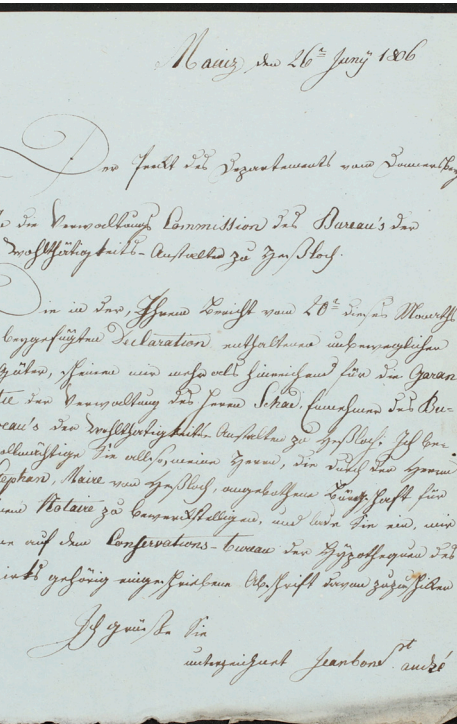 Mainz den 26ᵗ Junÿ 1806
Der Prefekt des Departements vom Donnersberg
die Verwaltungs Commission des Bureau's der
Wohlthätigkeits-Anstalten zu Heßloch.
Die in der, Ihrem Bericht vom 20ᵗ dieses Monaths
beygefügten Declaration enthaltenen unbeweglichen
Güter, scheinen mir mehr als hinreichend für die Garan
tie der Verwaltung des Herrn Schad, Einnehmer des Bu-
reau's der Wohlthätigkeits Anstalten zu Heßloch. Ich be-
vollmächtige Sie also, meine Herren, die durch den Herrn
Maire von Heßloch, angebothene Bürgschaft für
einem Notaire zu bewerkstelligen, und lade Sie ein, mir
eine auf dem Conservations-Bureau der Hypothequen des
gehörig eingeschriebene Abschrift davon zuzuschicken
Ich grüße Sie
unterzeichnet Jeanbon Sᵗ andré